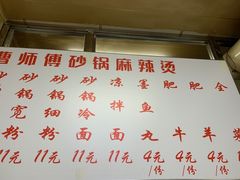 曹师傅砂锅麻辣烫
砂锅宽粉 11元
砂锅细粉 11元
砂锅冷面 11元
凉拌面 11元
墨鱼丸 4元/份
肥牛 4元/份
肥羊 4元/份
全